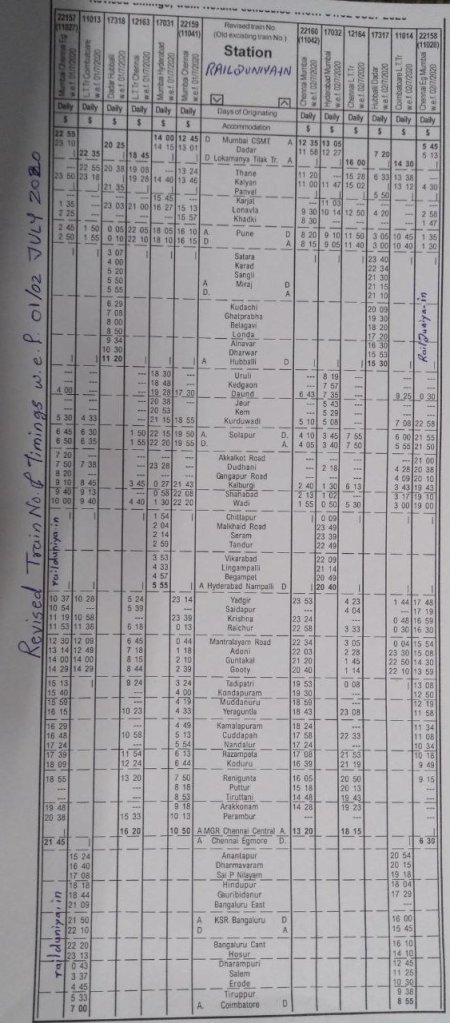 22157 11013 17318 12163 17031 22159 Revised train No. 22160 17032 12164 17317 11014 22158
(11027) (11041) (Old existing train No.) (11042) (11028)
Station
RAILDUNIYA.IN
Mumbai Chennai Eg w.e.f. 01/07/2020
LTT Coimbatore w.e.f. 01/07/2020
Dadar Hubballi w.e.f. 01/07/2020
LTTr Chennai w.e.f. 01/07/2020
Mumbai Hyderabad w.e.f. 01/07/2020
Mumbai Chennai w.e.f. 01/07/2020
Chennai Mumbai w.e.f. 02/07/2020
Hyderabad Mumbai w.e.f. 02/07/2020
Chennai LTTr w.e.f. 02/07/2020
Hubballi Dadar w.e.f. 02/07/2020
Coimbatore LTTr w.e.f. 02/07/2020
Chennai Eg Mumbai w.e.f. 02/07/2020
Daily Daily Daily Daily Daily Daily Days of Originating Daily Daily Daily Daily Daily Daily
$ $ $ $ $ $ Accommodation $ $ $ $ $ $
22 55 14 00 12 45 D Mumbai CSMT A 12 35 13 05 5 45
23 10 20 25 14 15 13 01 Dadar 11 58 12 27 7 20 5 13
22 35 18 45 D Lokamanya Tilak Tr. A 16 00 14 30
22 55 20 38 19 08 13 24 Thane 11 20 15 28 6 33 13 38
23 50 23 18 19 28 14 40 13 46 Kalyan 11 00 11 47 15 02 13 12 4 30
21 35 Panvel 5 50
15 45 Karjat 11 03
1 35 23 03 21 00 16 27 15 13 Lonavla 9 30 10 14 12 50 4 20 2 58
2 25 15 57 Khadki 8 30 1 47
2 45 1 50 0 05 22 05 18 05 16 10 A Pune D 8 20 9 10 11 50 3 05 10 45 1 35
2 50 1 55 0 10 22 10 18 10 16 15 D A 8 15 9 05 11 40 3 00 10 40 1 30
3 07 Satara 23 40
4 00 Karad 22 34
5 20 Sangli 21 30
5 50 A Miraj D 21 15
5 55 D. A 21 10
6 29 Kudachi 20 09
7 08 Ghatprabha 19 30
8 00 Belagavi 18 20
8 50 Londa 17 20
9 34 Alnavar 16 30
10 30 Dharwar 15 53
11 20 A Hubballi D 15 30
18 30 Uruli 8 19
18 48 Kedgaon 7 57
4 00 19 28 17 30 Daund 6 43 7 35 9 25 0 30
20 38 Jeur 5 43
20 53 Kem 5 29
5 30 4 33 21 15 18 55 Kurduwadi 5 10 5 08 7 08 22 58
6 45 6 30 1 50 22 15 19 50 A. Solapur D. 4 10 3 45 7 55 6 00 21 55
6 50 6 35 1 55 22 20 19 55 D. A. 4 05 3 40 7 50 5 55 21 50
7 20 Akkalkot Road 21 00
7 50 7 38 23 28 Dudhani 2 18 4 28 20 38
8 20 Gangapur Road 4 09 20 10
9 10 8 45 3 45 0 27 21 43 Kalburgi 2 40 1 30 6 13 3 43 19 43
9 40 9 13 0 58 22 08 Shahabad 2 13 1 02 3 17 19 10
10 00 9 40 4 40 1 30 22 20 Wadi 1 55 0 50 5 30 3 00 19 00
1 54 Chittapur 0 09
2 04 Malkhaid Road 23 49
2 14 Seram 23 39
2 59 Tandur 22 49
3 53 Vikarabad 22 09
4 33 Lingampalli 21 14
4 57 Begampet 20 49
5 55 A Hyderabad Nampalli D 20 40
10 37 10 28 5 24 23 14 Yadgir 23 53 4 23 1 44 17 48
10 54 5 39 Saidapur 4 04 17 19
11 19 10 58 23 39 Krishna 23 24 0 48 16 59
11 53 11 36 6 18 0 13 Raichur 22 58 3 33 0 30 16 30
12 30 12 09 6 45 0 44 Mantralayam Road 22 34 3 05 0 04 15 54
13 14 12 49 7 18 1 18 Adoni 22 03 2 28 23 30 15 08
14 00 14 00 8 15 2 10 Guntakal 21 20 1 45 22 50 14 30
14 29 14 29 8 44 2 39 Gooty 20 40 1 14 22 10 13 59
15 13 9 24 3 24 Tadipatri 19 53 0 08 13 08
15 40 4 00 Kondapuram 19 30 12 50
15 59 4 19 Muddanuru 18 59 12 19
16 15 10 23 4 33 Yeraguntla 18 43 23 08 11 58
16 29 4 49 Kamalapuram 18 24 11 34
16 48 10 58 5 13 Cuddapah 17 58 22 33 11 08
17 24 5 54 Nandalur 17 24 10 34
17 39 11 54 6 13 Razampeta 17 08 21 53 10 18
18 09 12 24 6 44 Koduru 16 39 21 19 9 49
18 55 13 20 7 50 Renigunta 16 05 20 50 9 15
8 18 Puttur 15 18 20 13
8 53 Tiruttani 14 48 19 43
19 48 9 18 Arakkonam 14 28 19 23
20 38 15 33 10 13 Perambur
16 20 10 50 A MGR Chennai Central A. 13 20 18 15
21 45 A Chennai Egmore D. 6 30
15 24 Anantapur 20 54
16 40 Dharmavaram 20 15
17 08 Sai P Nilayam 19 18
18 18 Hindupur 18 04
18 44 Gauribidanur 17 29
21 09 Bangaluru East
21 50 A KSR Bangaluru D 16 00
22 10 D A 15 45
22 20 Bangaluru Cant 16 10
23 13 Hosur 14 10
0 43 Dharampuri 12 45
3 37 Salem 11 25
4 45 Erode 10 30
5 33 Tiruppur 9 38
7 00 A Coimbatore D 8 55
Revised Train No & Timings w.e.f. 01/02 JULY 2020
railduniya.in
railduniya.in
Railduniya.in